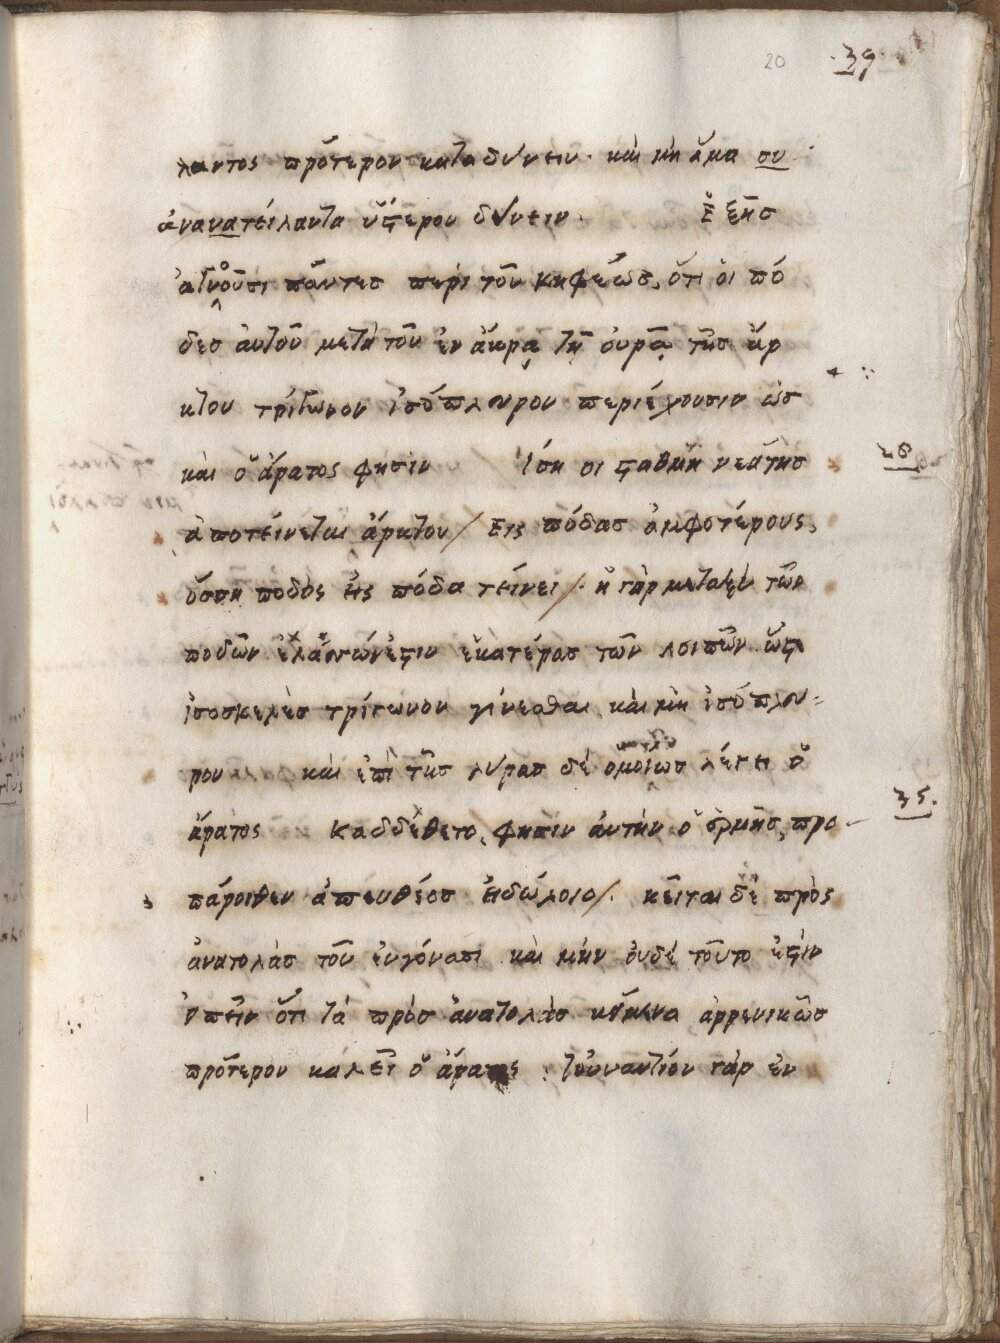 20 39
λαντος πρότερον καταδύνειν. καὶ μὴ ἅμα συ
ἀνανατείλαντα ὕστερον δύνειν. Ἑξῆς
ἀγνοοῦσι πάντες περὶ τοῦ κηφέως, ὅτι οἱ πό
δες ἀυτοῦ μετὰ τοῦ ἐν ἄκρᾳ τῇ ὀυρᾷ τῆς ἄρ
κτου τρίγωνον ἰσόπλευρον περιέχουσιν ὡς
καὶ ὁ ἄρατος φησὶν Ἴση οἱ σταθμὴ νεάτης
28
ἀποτείνεται ἄρκτου / Εις πόδας ἀμφοτέρους,
ὅσση ποδὸς εἰς πόδα τείνει /. ἡ γὰρ μεταξὺ τῶν
ποδῶν ἐλάσσων ἐστιν ἑκατέρας τῶν λοιπῶν ὥστε
ἰσοσκελὲς τρίγωνον γίνεσθαι καὶ μὴ ἰσόπλευ-
ρον καὶ ἐπὶ τῆς λύρας δὲ ὁμοίως λέγει ὁ
35.
ἄρατος καδδέθετο, φησὶν ἀυτὴν ὁ ἑρμῆς, προ
πάροιθεν ἀπευθέος εἰδώλοιο /. κεῖται δὲ πρὸς
ἀνατολὰς τοῦ ἐνγόνασι καὶ μὴν ὀυδὲ τοῦτο ἐστὶν
ἐιπεῖν ὅτι τὰ πρὸς ἀνατολὰς κείμενα ἀρρενικῶς
πρότερον καλεῖ ὁ ἄρατος . τοὐναντίον γὰρ ἐν